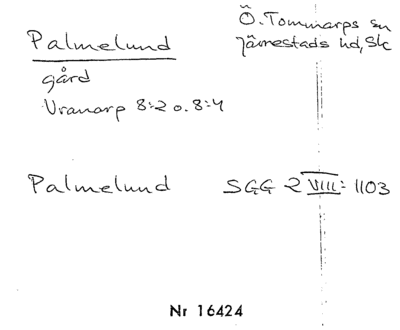 Palmelund
Ö. Tommarps sn
Järrestads hd, Sk
gård
Vranarp 8:2 o. 8:4
Palmelund SGG 2 VIII: 1103
Nr 16424